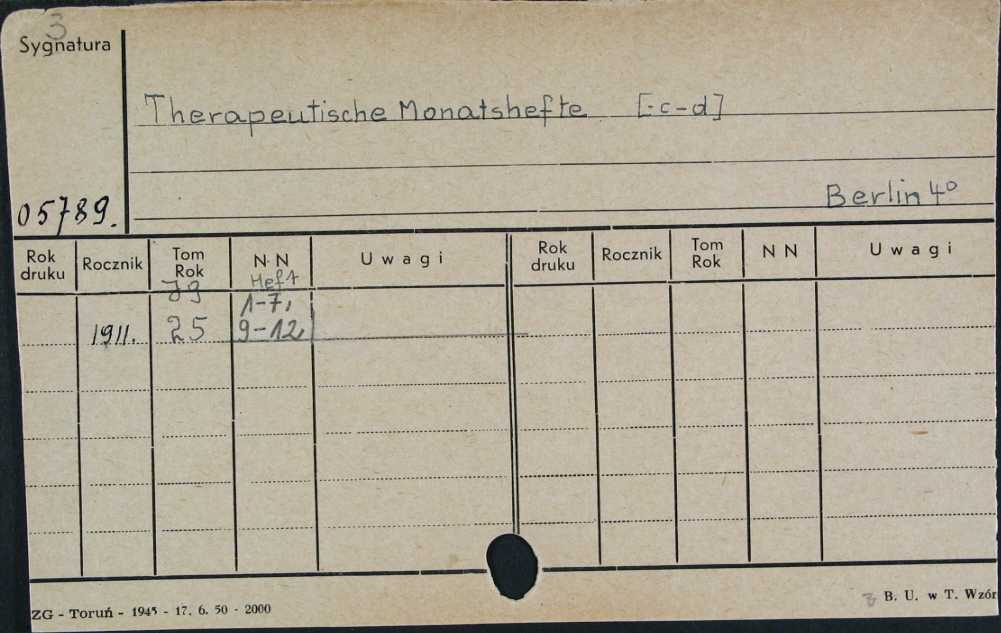 3
Sygnatura
Therapeutische Monatshefte [-c-d]
Berlin 4°
05789.
Rok druku Rocznik Tom Rok N N Uwagi Rok druku Rocznik Tom Rok N N Uwagi
Jg Heft
1-7,
1911. 25 9-12,
ZG - Toruń - 1945 - 17. 6. 50 - 2000
B. U. w T. Wzór